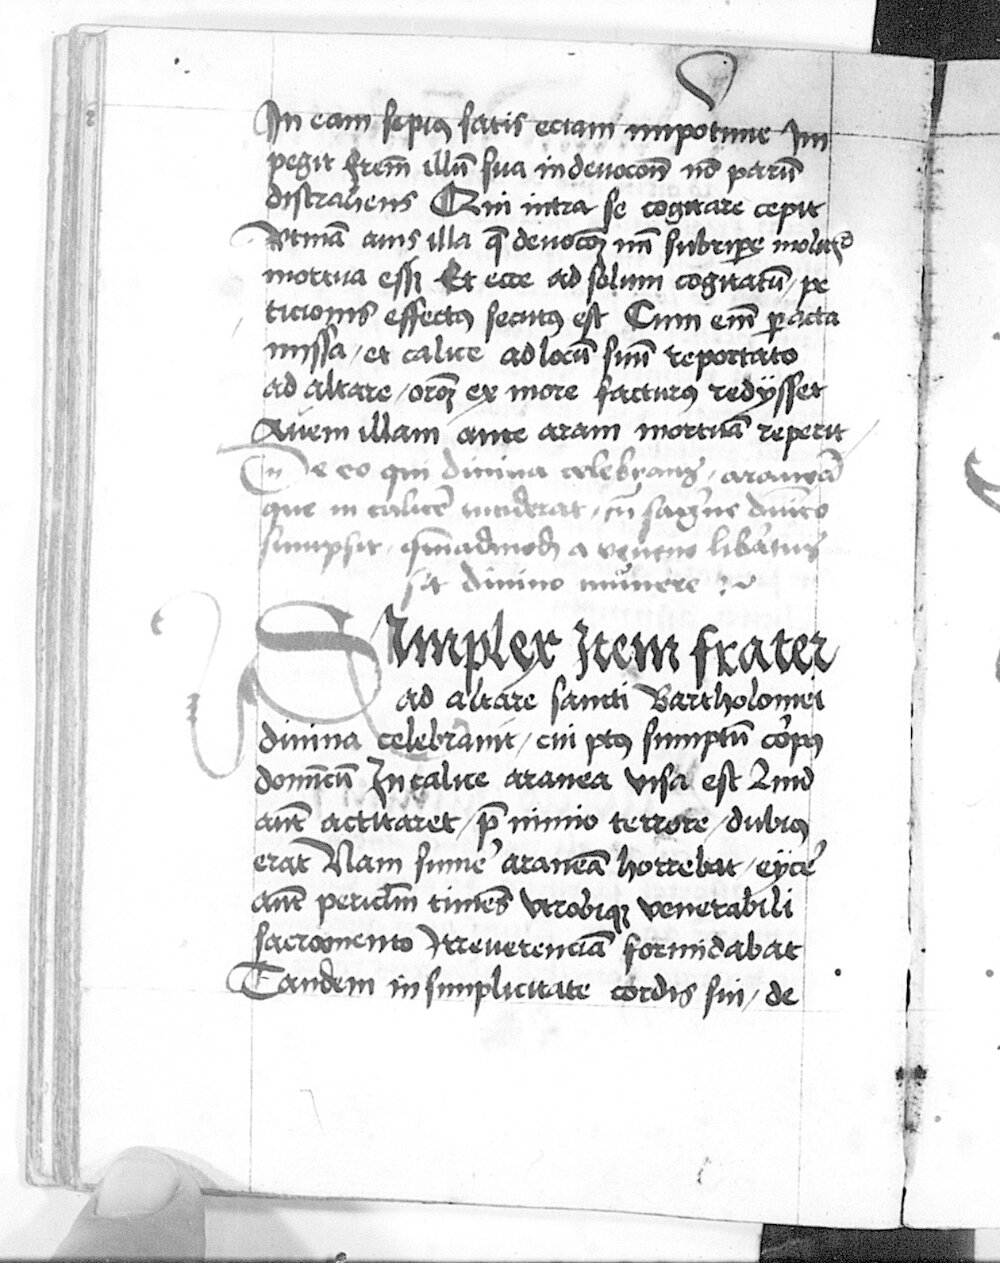 In eam sepius satis eciam inportune Im
pegit frem̄ illū sua indeuocōnē nō parū
distrahens Qui intra se cogitare cepit
Vtinā auis illa q̄ deuocōeȝ mī subripe molitᵣ
mortua esset Et ecce ad solum cogitatū / pe
ticionis effectꝰ secutꝰ est Cum em̄ ꝑacta
missa / et calice ad locū suū reportato
ad altare / orōȝ ex more facturꝰ redijsset
Auem illam ante aram mortuā reperit
De eo qui diuina celebrans / araneā
que in calicē inciderat / cū sāgne dnico
sumpsit / quēadmodū a veneno libatus
sit diuino munere
SImplex Item frater
ad altare sancti Bartholomei
diuina celebrauit / cui pᵗ sumptū corpꝰ
domicū In calice aranea visa est Quid
aūt actitaret / p̄ nimio terrore / dubiꝰ
erat Nam sumē araneā horrebat / eijcē
aūt pericłm timēs vtrobiqꝫ venerabili
sacramento Irreuerenciā formidabat
Tandem in simplicitate cordis sui / de